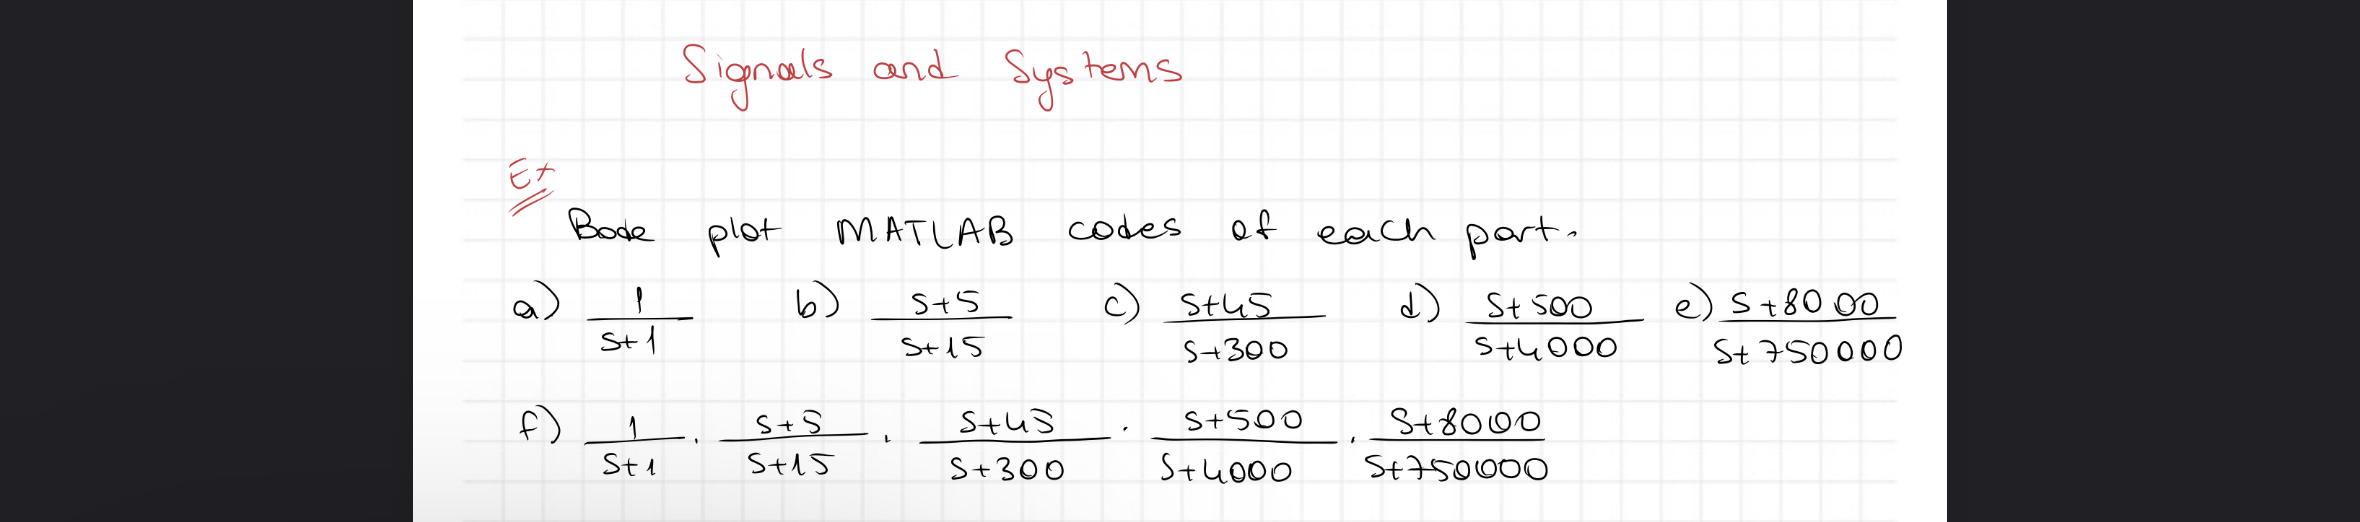 Signals and Systems
Ex
Bode plot MATLAB codes of each part.
a) 1/(s+1) b) (s+5)/(s+15) c) (s+45)/(s+300) d) (s+500)/(s+4000) e) (s+8000)/(s+750000)
f) 1/(s+1) . (s+5)/(s+15) . (s+45)/(s+300) . (s+500)/(s+4000) . (s+8000)/(s+750000)